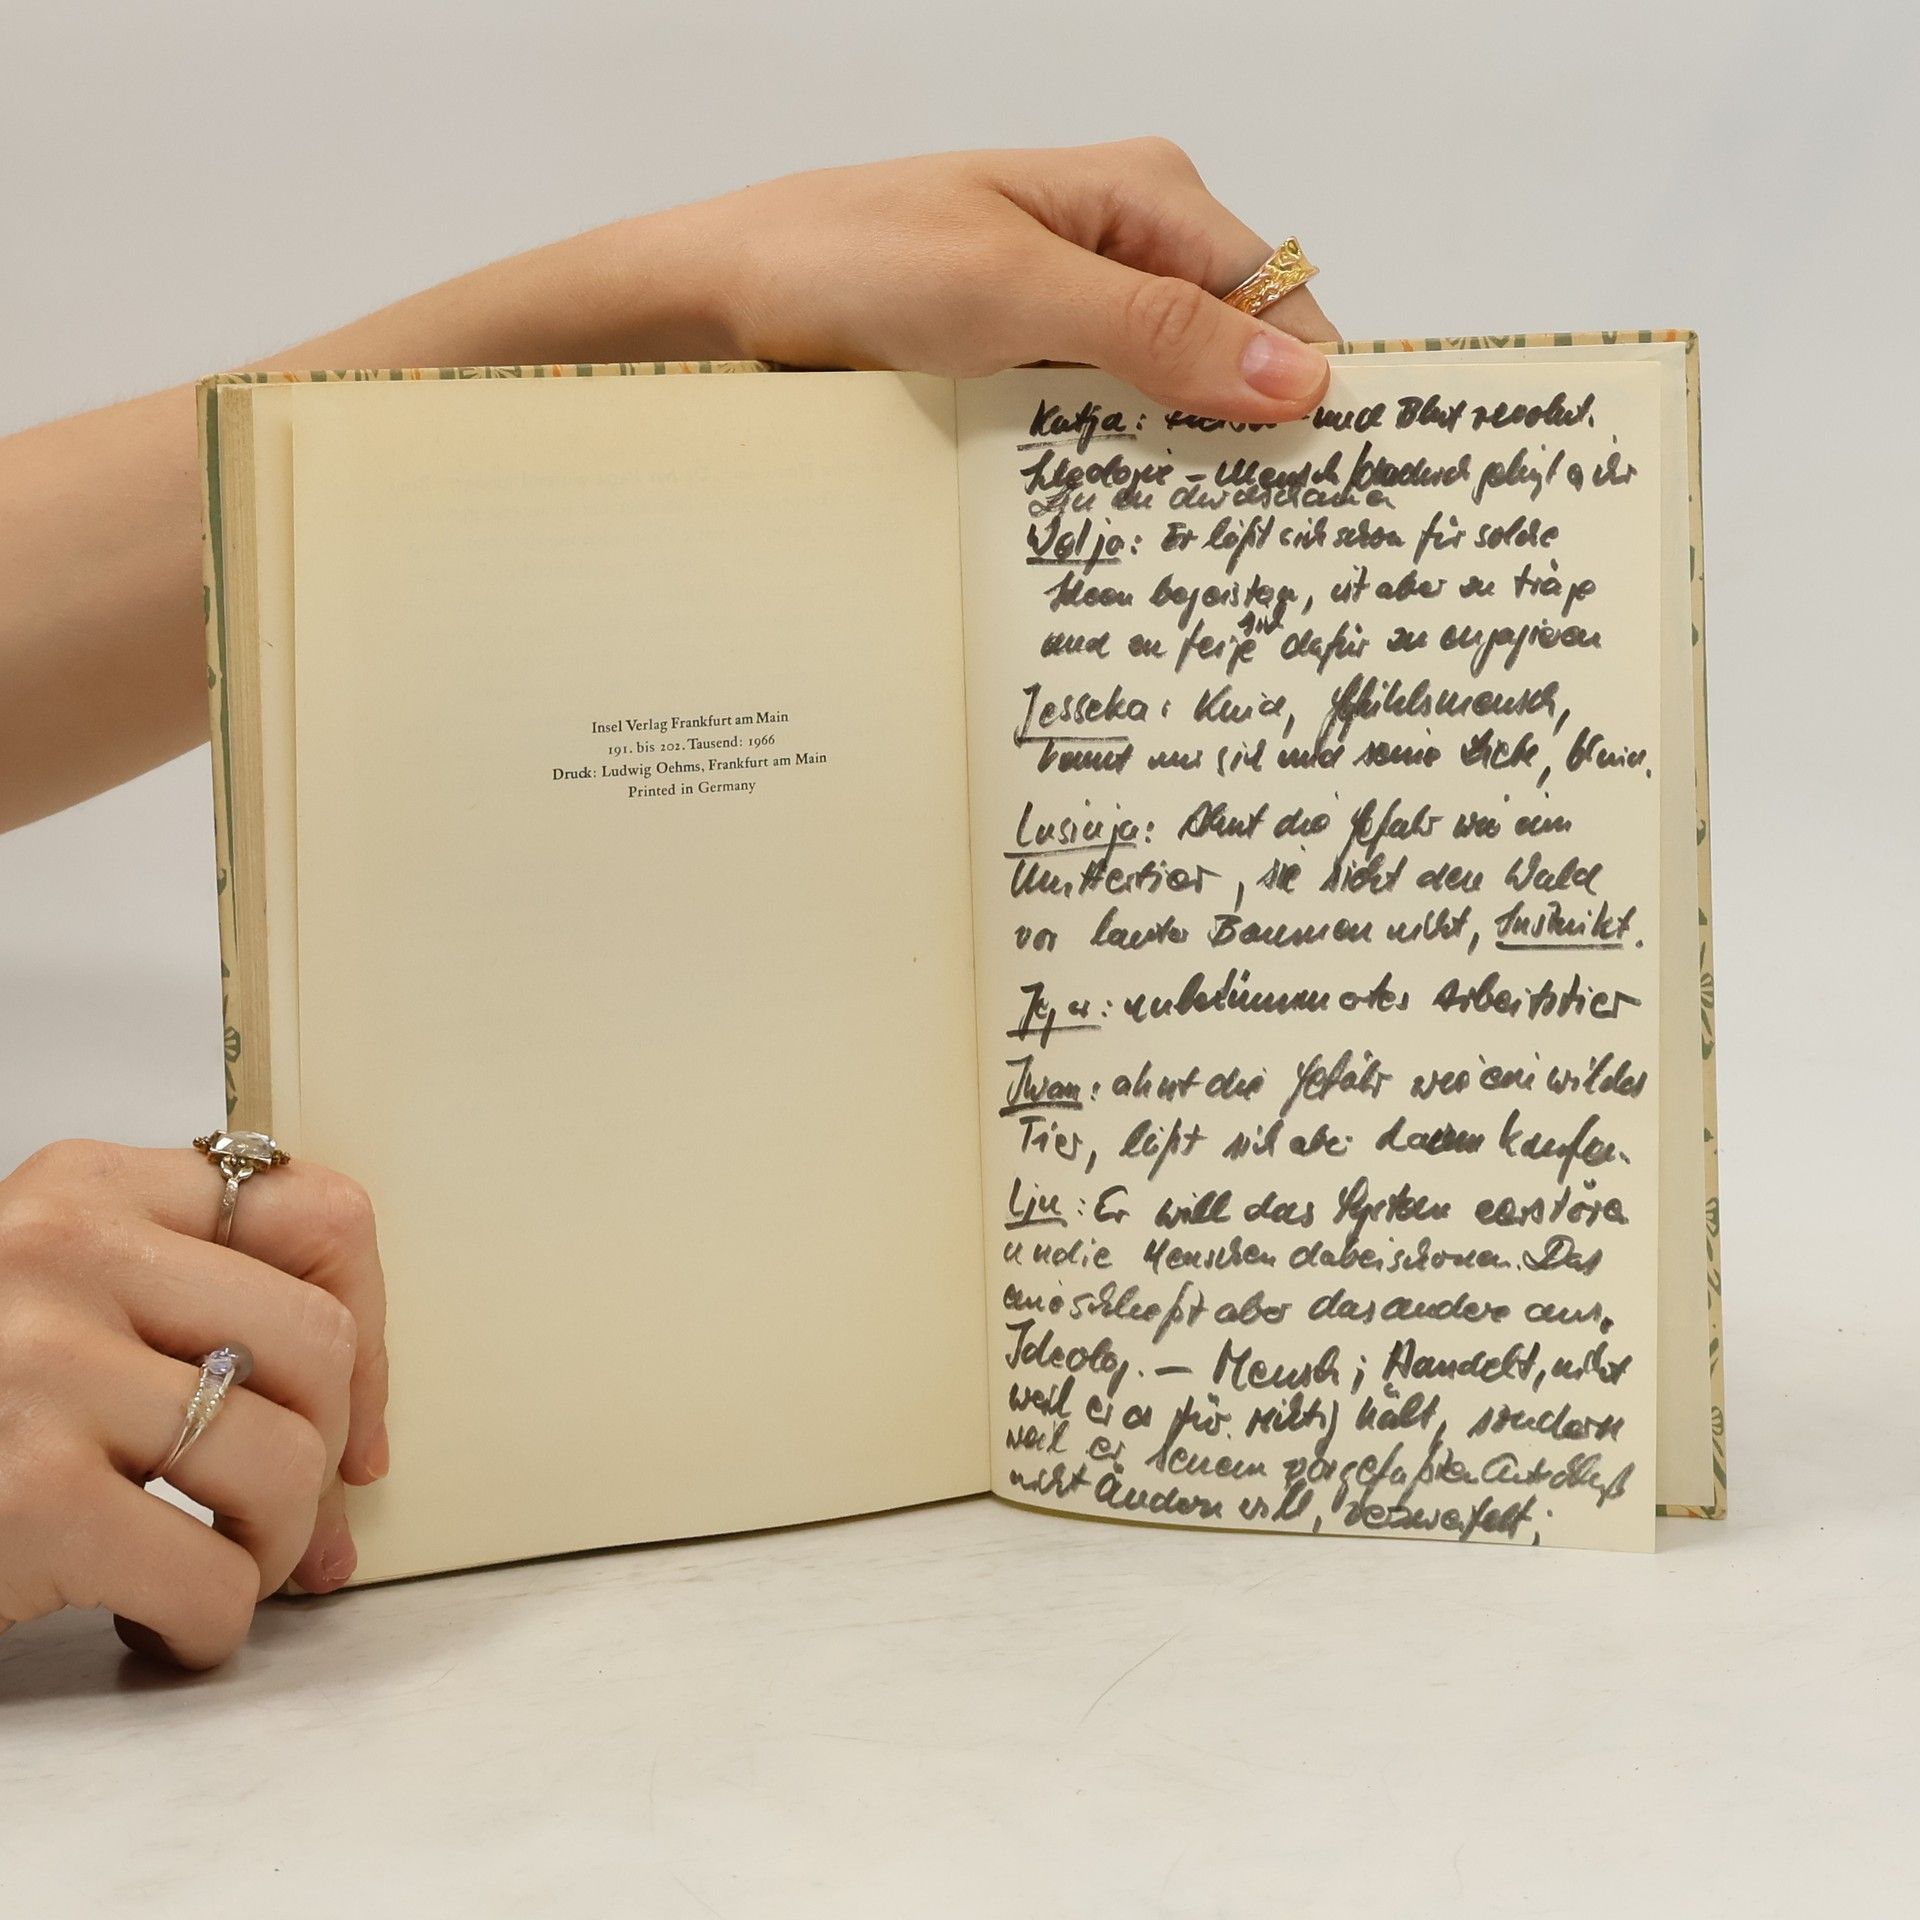 Insel Verlag Frankfurt am Main
191. bis 202. Tausend: 1966
Druck: Ludwig Oehms, Frankfurt am Main
Printed in Germany
Katja: und Blut revolut.
Ideologie – Mensch / dadurch gelingt es ihr
Lju zu durchschauen
Welja: Er läßt sich schon für solche
Ideen begeistern, ist aber zu träge
und zu feige sich dafür zu engagieren
Jessika: Kind, Gefühlsmensch,
kennt nur sich und seine Liebe,
Lusinja: Ahnt die Gefahr wie ein
Muttertier, sie sieht den Wald
vor lauter Bäumen nicht, Instinkt.
Jegor: unbekümmertes Arbeitstier
Iwan: ahnt die Gefahr wie ein wildes
Tier, läßt sich aber dann kaufen.
Lju: Er will das System zerstören
u. die Menschen dabei schonen. Das
eine schließt aber das andere aus.
Ideolog. – Mensch; Handelt, nicht
weil er es für richtig hält, sondern
weil er seinen vorgefaßten Entschluß
nicht ändern will, verzweifelt;